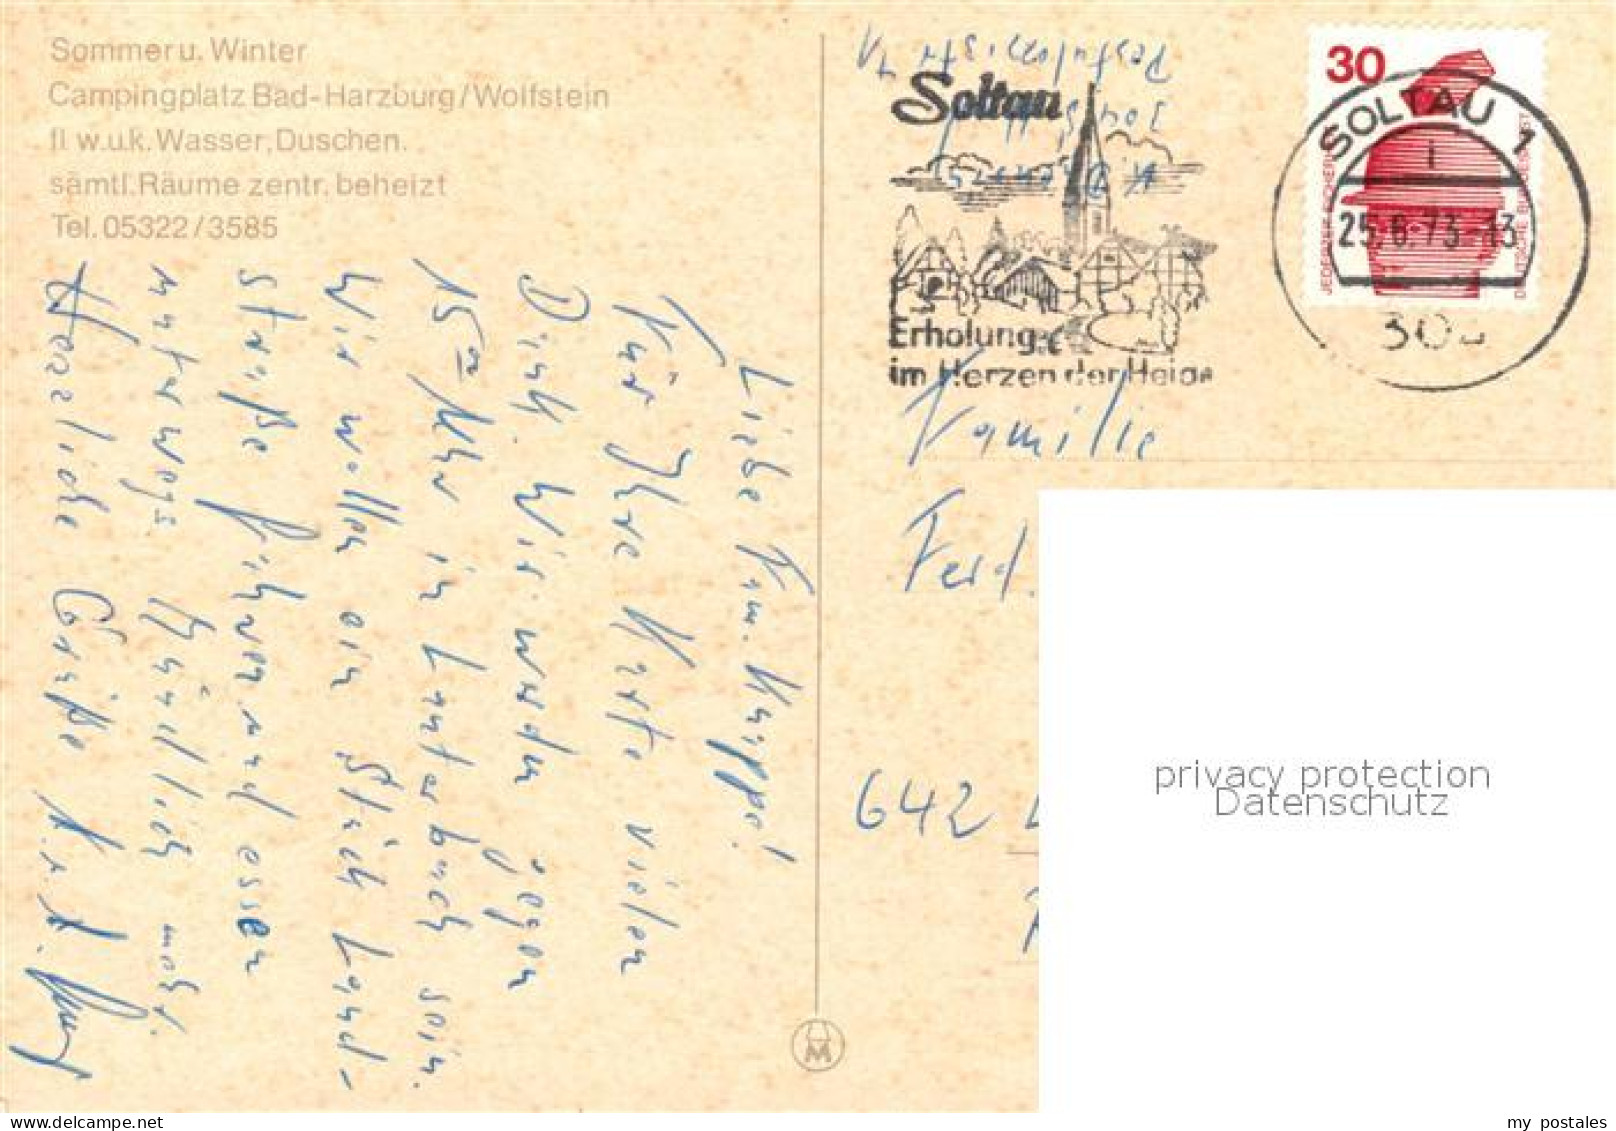 Sommer u. Winter
Campingplatz Bad-Harzburg/Wolfstein
fl w.u.k. Wasser, Duschen.
sämtl. Räume zentr. beheizt
Tel. 05322/3585
Liebe Fam. Knippe!
Für Ihre Karte vielen
Dank. Wir werden gegen
15 Uhr in Lauterbach sein.
Wir wollen ein Stück Land-
straße fahren und essen
unterwegs
Herzliche Grüße
Soltau
Erholung
im Herzen der Heide
30
JEDERZEIT SICHERHEIT
DEUTSCHE BUNDESPOST
SOLTAU 1
i
25.6.73-13
304
Familie
Ferd.
642
M
privacy protection
Datenschutz
my postales